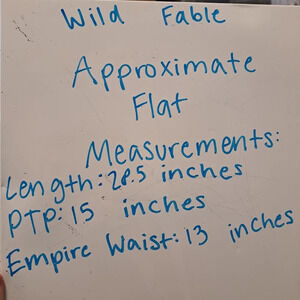 Wild Fable
Approximate
Flat
Measurements:
Length: 28.5 inches
PTP: 15 inches
Empire Waist: 13 inches